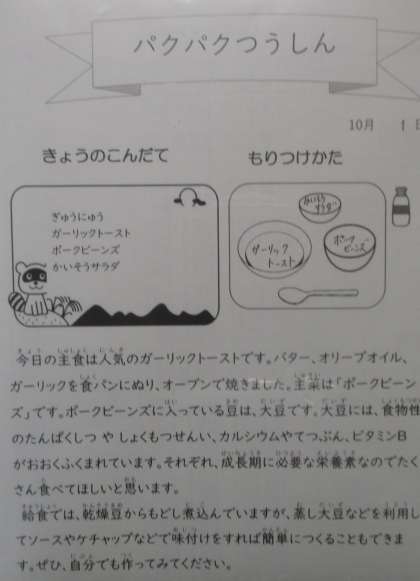 パクパクつうしん
10月 1日
きょうのこんだて
もりつけかた
ぎゅうにゅう
ガーリックトースト
ポークビーンズ
かいそうサラダ
かいそう
サラダ
ガーリック
トースト
ポーク
ビーンズ
今日の主食は人気のガーリックトーストです。バター、オリーブオイル、
ガーリックを食パンにぬり、オーブンで焼きました。主菜は「ポークビーン
ズ」です。ポークビーンズに入っている豆は、大豆です。大豆には、食物性
のたんぱくしつ や しょくもつせんい、カルシウムやてつぶん、ビタミンB
がおおくふくまれています。それぞれ、成長期に必要な栄養素なのでたく
さん食べてほしいと思います。
給食では、乾燥豆からもどし煮込んでいますが、蒸し大豆などを利用し
てソースやケチャップなどで味付けをすれば簡単につくることもできま
す。ぜひ、自分でも作ってみてください。